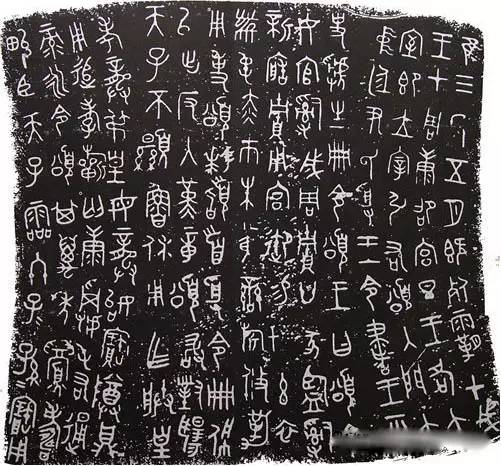 隹三年五月既死霸甲戌
王才周康卲宮旦王各大
室即立宰引右頌入門立
中廷尹氏受王令書王乎
史虢生冊令頌王曰頌令
女官𤔲成周貯廿家監𤔲
新造貯用宮御易女玄衣
黹屯赤巿朱黃䜌旂攸勒
用事頌拜𩒨首受令冊佩
㠯出反入堇章頌敢對揚
天子不顯魯休用乍朕皇
考龏弔皇母龏始寶尊鼎
用追孝𣄨匄康屯右通
彔永令頌其萬年眉壽
畯臣天子霝冬子孫寶用